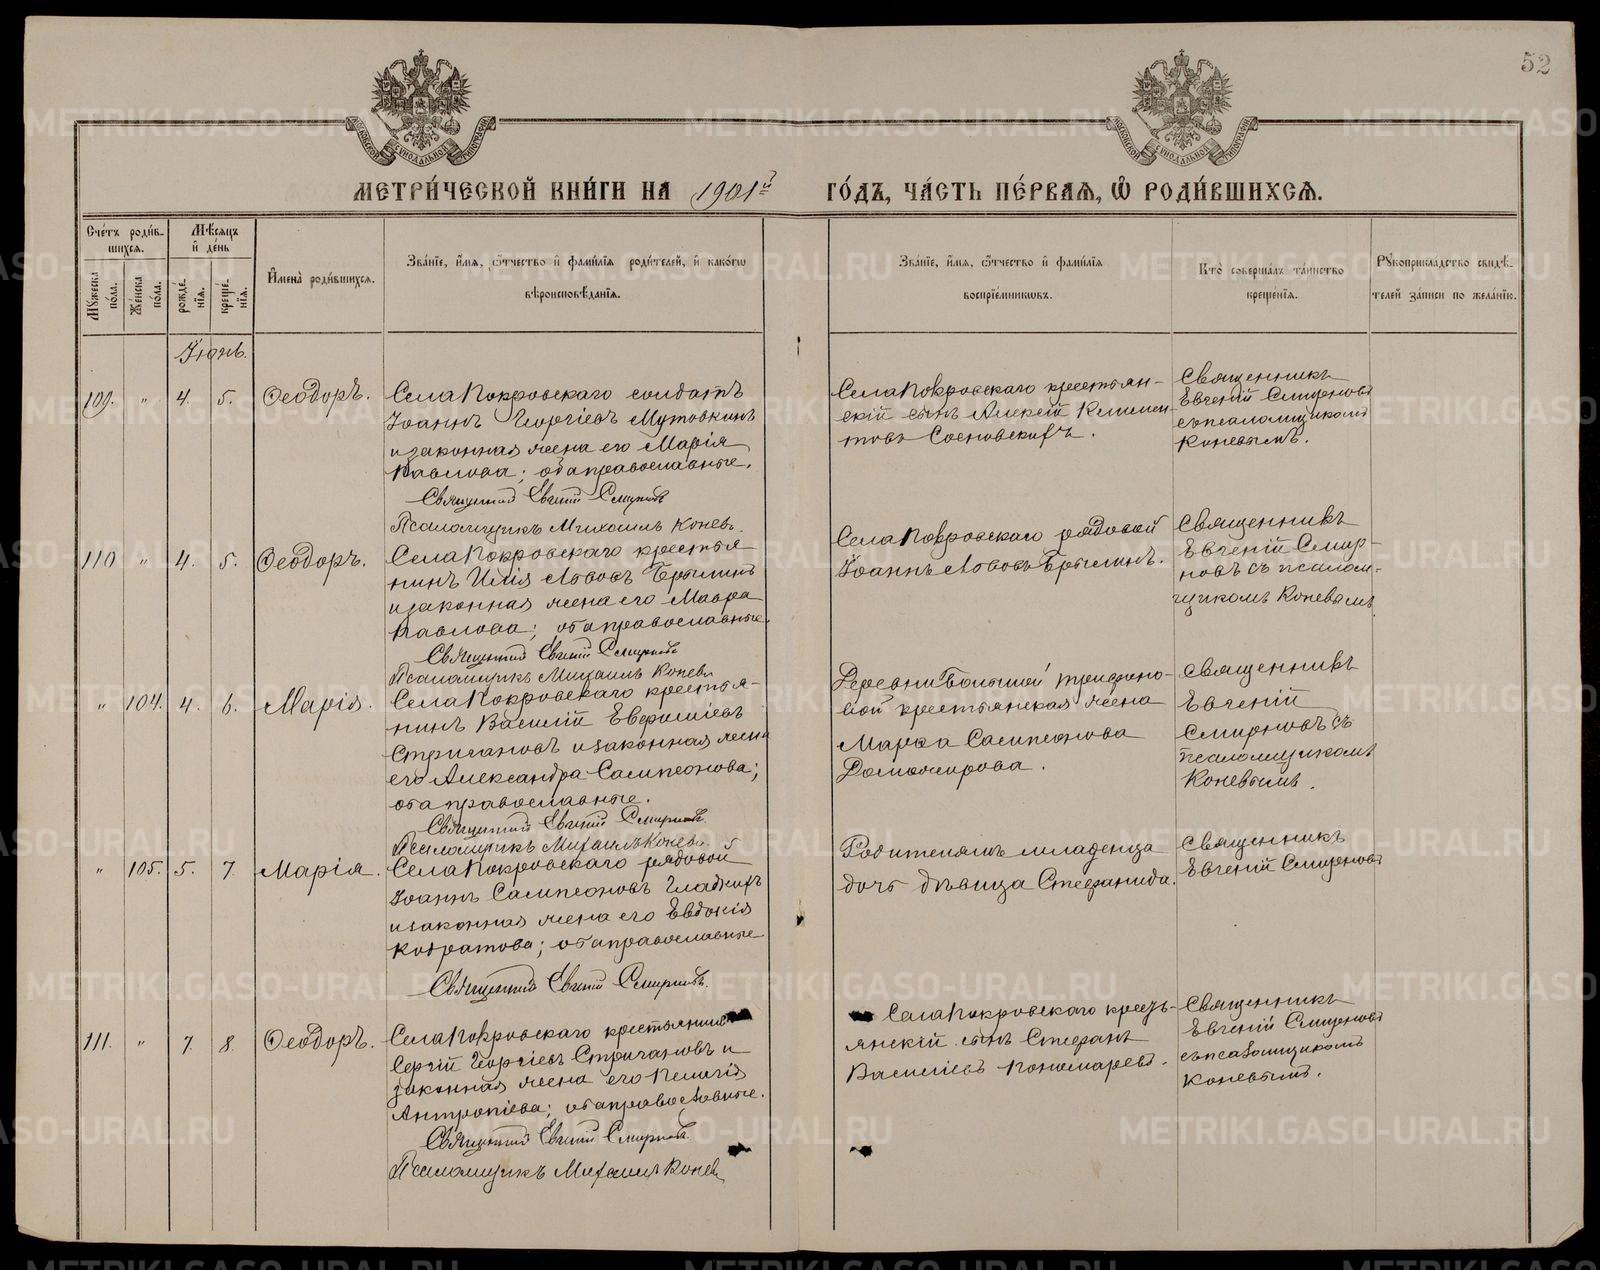 52
МОСКОВСКОЙ СѴНОДАЛЬНОЙ ТИПОГРАФІИ
МОСКОВСКОЙ СѴНОДАЛЬНОЙ ТИПОГРАФІИ
МЕТРИ́ЧЕСКОЙ КНИ́ГИ НА 1901й ГО́ДЪ, ЧА́СТЬ ПЕ́РВАЯ, Ѡ РОДИ́ВШИХСЯ.
Сче́тъ роди́в-
шихся.
Му́жеска по́ла.
Же́нска по́ла.
Мѣ́сяцъ
и де́нь
рожде́-
нія.
креще́-
нія.
Имена̀ роди́вшихся.
Зва́ніе, и́мя, о́тчество и фами́лія роди́телей, и како́гѡ
вѣроисповѣ́данія.
Зва́ніе, и́мя, о́тчество и фами́лія
воспріе́мниковъ.
Кто̀ соверша́лъ та́инство
креще́нія.
Рꙋкоприкла́дство свидѣ́-
телей за́писи по жела́нію.
Іюнь.
109. " 4. 5. Ѳеодоръ.
Села Покровскаго солдатъ
Іоаннъ Георгіевъ Мутовкинъ
и законная жена его Марія
Павлова; оба православные.
Священникъ Евгеній Смирновъ
Псаломщикъ Михаилъ Коневъ.
Села Покровскаго крестьян-
скій сынъ Алексій Климен-
товъ Сосновскихъ.
Священникъ
Евгеній Смирновъ
съ псаломщикомъ
Коневымъ.
110 " 4. 5. Ѳеодоръ.
Села Покровскаго крестья-
нинъ Илія Львовъ Брылинъ
и законная жена его Мавра
Павлова; оба православные.
Священникъ Евгеній Смирновъ
Псаломщикъ Михаилъ Коневъ
Села Покровскаго рядовой
Іоаннъ Львовъ Брылинъ.
Священникъ
Евгеній Смир-
новъ съ псалом-
щикомъ Коневымъ
" 104. 4. 6. Марія.
Села Покровскаго крестья-
нинъ Василій Евфиміевъ
Стригановъ и законная жена
его Александра Сампсонова;
оба православные.
Священникъ Евгеній Смирновъ.
Псаломщикъ Михаилъ Коневъ.
Деревни Большой Трифоно-
вой крестьянская жена
Марѳа Сампсонова
Домочирова.
Священникъ
Евгеній
Смирновъ съ
псаломщикомъ
Коневымъ.
" 105. 5. 7. Марія.
Села Покровскаго рядовой
Іоаннъ Сампсоновъ Гладкихъ
и законная жена его Евдокія
Кодратова; оба православные
Священникъ Евгеній Смирновъ.
Родителямъ младенца
дочь дѣвица Стефанида.
Священникъ
Евгеній Смирновъ
111. " 7. 8. Ѳеодоръ.
Села Покровскаго крестьянинъ
Сергій Георгіевъ Стригановъ и
законная жена его Пелагія
Антропіева; оба православные.
Священникъ Евгеній Смирновъ.
Псаломщикъ Михаилъ Коневъ
Села Покровскаго кресть-
янскій сынъ Стефанъ
Василіевъ Пономаревъ.
Священникъ
Евгеній Смирновъ
съ псаломщикомъ
Коневымъ.
METRIKI.GASO-URAL.RU